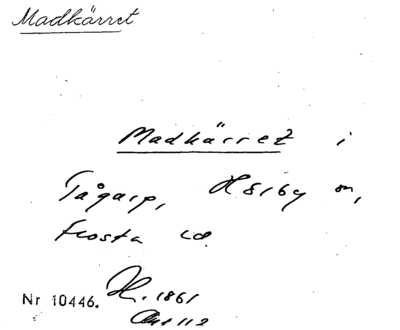 Madkärret
Madkärret i
Tågarp, Hörby sn,
Frosta hd.
Nr 10446. 1861
112